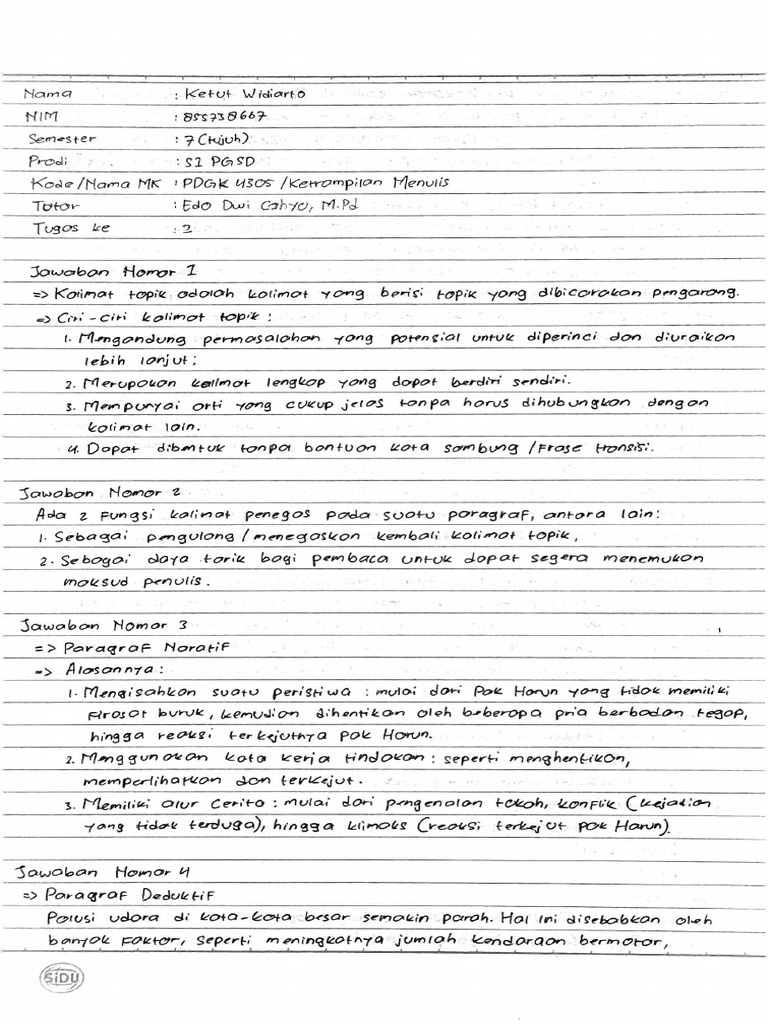 Nama : Ketut Widiarto
NIM : 855738667
Semester : 7 (tujuh)
Prodi : S1 PGSD
Kode/Nama MK : PDGK 4305 /Ketrampilan Menulis
Tutor : Edo Dwi Cahyo, M.Pd
Tugas ke : 2
Jawaban Nomor 1
=> Kalimat topik adalah kalimat yang berisi topik yang dibicarakan pengarang.
=> Ciri-ciri kalimat topik :
1. Mengandung permasalahan yang potensial untuk diperinci dan diuraikan
lebih lanjut;
2. Merupakan kalimat lengkap yang dapat berdiri sendiri.
3. Mempunyai arti yang cukup jelas tanpa harus dihubungkan dengan
kalimat lain.
4. Dapat dibentuk tanpa bantuan kata sambung /frase transisi.
Jawaban Nomor 2
Ada 2 fungsi kalimat penegas pada suatu paragraf, antara lain:
1. Sebagai pengulang/menegaskan kembali kalimat topik,
2. Sebagai daya tarik bagi pembaca untuk dapat segera menemukan
maksud penulis.
Jawaban Nomor 3
=> Paragraf Naratif
=> Alasannya :
1. Mengisahkan suatu peristiwa : mulai dari Pak Harun yang tidak memiliki
firasat buruk, kemudian dihentikan oleh beberapa pria berbadan tegap,
hingga reaksi terkejutnya Pak Harun.
2. Menggunakan kata kerja tindakan : seperti menghentikan,
memperlihatkan dan terkejut.
3. Memiliki alur cerita : mulai dari pengenalan tokoh, konflik (kejadian
yang tidak terduga), hingga klimaks (reaksi terkejut pak Harun).
Jawaban Nomor 4
=> Paragraf Deduktif
Polusi udara di kota-kota besar semakin parah. Hal ini disebabkan oleh
banyak faktor, seperti meningkatnya jumlah kendaraan bermotor,
SiDU